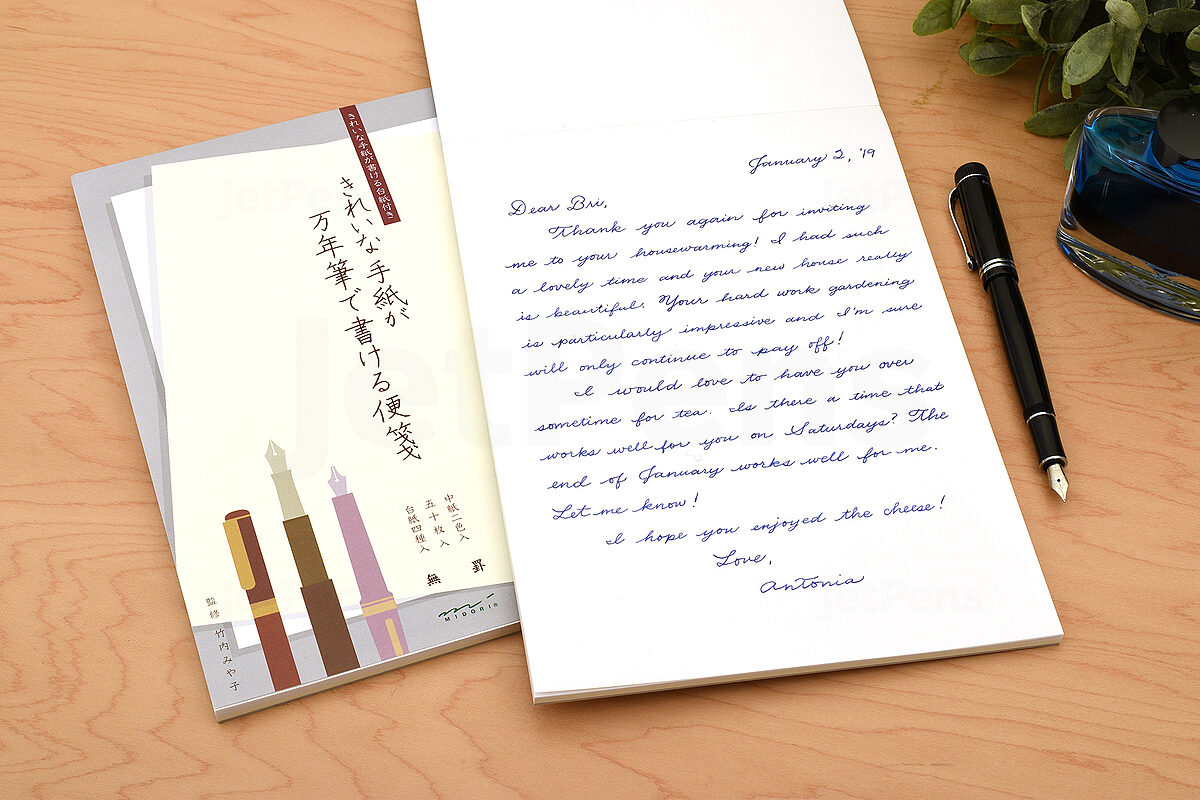 きれいな手紙が書ける台紙付き
きれいな手紙が
万年筆で書ける便箋
中紙二色入
五十枚入
台紙四種入
無罫
MIDORI®
監修 竹内みや子
January 2, '19
Dear Bri,
Thank you again for inviting
me to your housewarming! I had such
a lovely time and your new house really
is beautiful. Your hard work gardening
is particularly impressive and I'm sure
will only continue to pay off!
I would love to have you over
sometime for tea. Is there a time that
works well for you on Saturdays? The
end of January works well for me.
Let me know!
I hope you enjoyed the cheese!
Love,
Antonia
JetPens
JetPens
JetPens